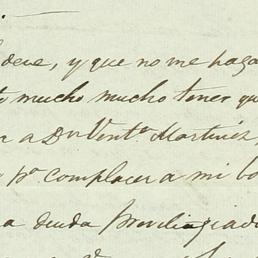 deve, y que no me haga
mucho mucho tener que
a Dn Vent.ª Martinez
p.ª complacer a mi
a deuda privilegiada